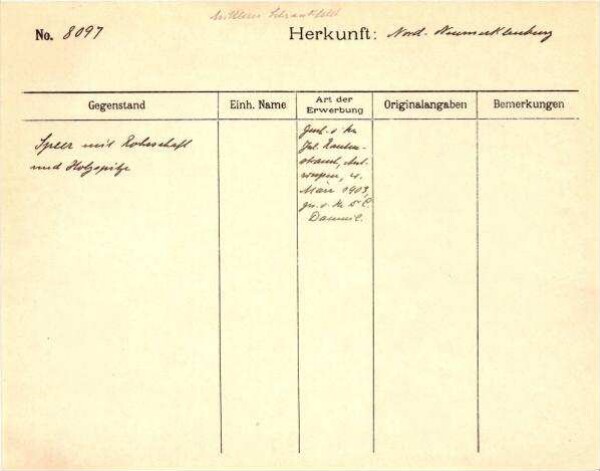 Mittleres Schrankfeld
No. 8097 Herkunft: Nord-Neumecklenburg
Gegenstand Einh. Name Art der Erwerbung Originalangaben Bemerkungen
Speer mit Rohrschaft
und Holzspitze
Gesch. v. Hr
Jul. Rauten-
strauch, Ant-
werpen, 4.
März 1903,
v. Hr